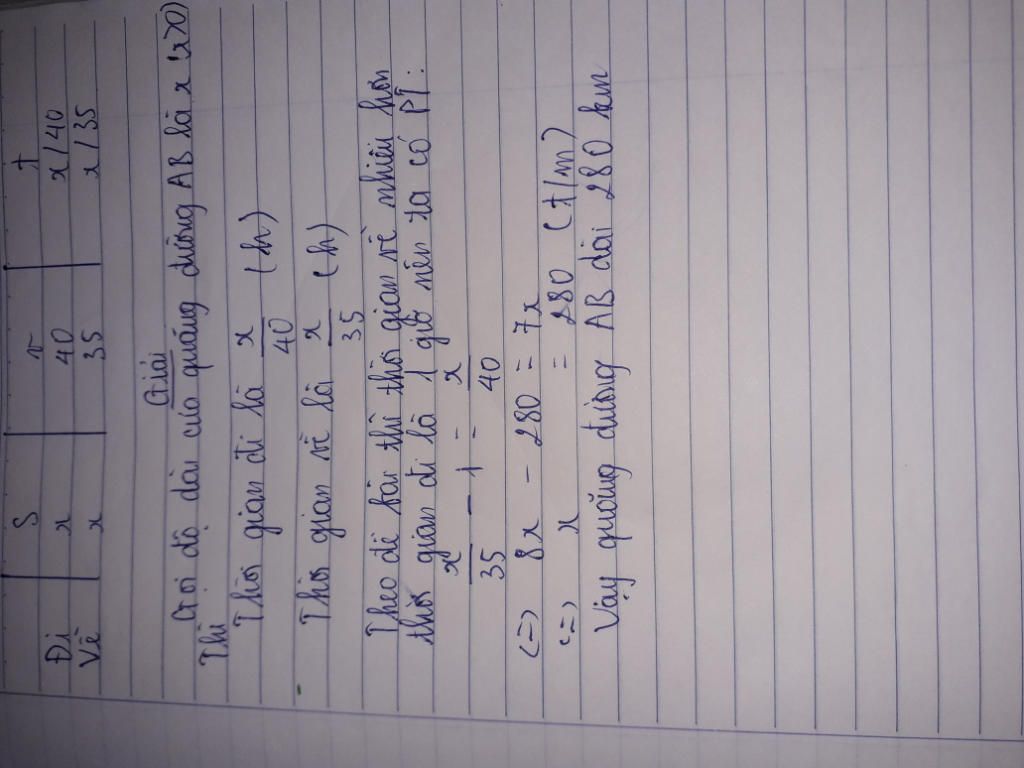 S v t
Đi x 40 x/40
Về x 35 x/35
Giải
Gọi độ dài của quãng đường AB là x (x>0)
Thì
Thời gian đi là x/40 (h)
Thời gian về là x/35 (h)
Theo đề bài thì thời gian về nhiều hơn
thời gian đi là 1 giờ nên ta có PT:
x/35 - 1 = x/40
<=> 8x - 280 = 7x
<=> x = 280 (t/m)
Vậy quãng đường AB dài 280 km